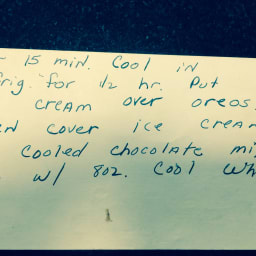 15 min. Cool in
frig. for 1/2 hr. Put
cream over oreos.
cover ice cream
cooled chocolate mi
w/ 8oz. Cool Wh